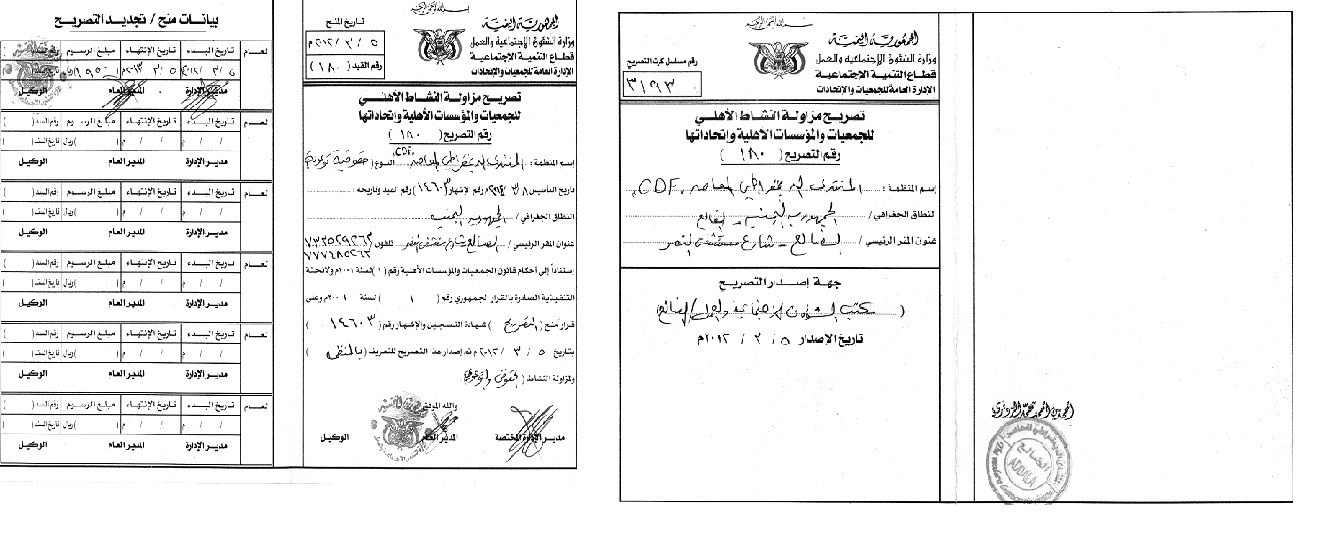 بسم الله الرحمن الرحيم
الجمهورية اليمنية
وزارة الشئون الإجتماعية والعمل
قطاع التنمية الاجتماعية
الإدارة العامة للجمعيات والإتحادات
رقم مسلسل كرت التصريح
٣١٩٣
تصريح مزاولة النشاط الأهلي
للجمعيات والمؤسسات الأهلية وإتحاداتها
رقم التصريح ( ١٨٠ )
إسم المنظمة : المنتدى الديمقراطي المعاصر CDF
النطاق الجغرافي / الجمهورية اليمنية - الضالع
عنوان المقر الرئيسي / الضالع - شارع مستشفى النصر
جهة إصدار التصريح
( مكتب الشئون الاجتماعية والعمل / الضالع )
تاريخ الإصدار ٥ / ٣ / ٢٠١٢م
الضالع
ADDALA
بسم الله الرحمن الرحيم
الجمهورية اليمنية
وزارة الشئون الإجتماعية والعمل
قطاع التنمية الاجتماعية
الإدارة العامة للجمعيات والإتحادات
تاريخ المنح
٥ / ٣ / ٢٠١٢م
رقم القيد ( ١٨٠ )
تصريح مزاولة النشاط الأهلي
للجمعيات والمؤسسات الأهلية وإتحاداتها
رقم التصريح ( ١٨٠ )
إسم المنظمة : المنتدى الديمقراطي المعاصر CDF النوع ( حقوقية توعوية
تاريخ التأسيس رقم الإشهار ( ١٤٦٠٣ ) رقم العيد وتاريخه :
النطاق الجغرافي / الجمهورية اليمنية
عنوان المقر الرئيسي / الضالع شارع مستشفى النصر تلفون ٧٣٣٥٢٩٢٦٢
٧٧٧٤٨٥٢٦٣
إستناداً إلى أحكام قانون الجمعيات والمؤسسات الأهلية رقم (١) لسنة ٢٠٠١م ولائحته
التنفيذية الصادرة بالقرار الجمهوري رقم ( ) لسنة ٢٠٠١م وعلى
قرار منح ( التصريح ) شهادة التسجيل والإشهار رقم ( ١٤٦٠٣ )
بتاريخ ٥ / ٣ / ٢٠١٢م تم إصدار هذا التصريح للتعريف ( بالمنظمة )
ولمزاولة النشاط (
والله الموفق
مدير الإدارة المختصة المدير العام الوكيل
بيانات منح / تجديد التصريح
لعام تاريخ البدء تاريخ الإنتهاء مبلغ الرسوم
مدير الإدارة المدير العام الوكيل
لعام تاريخ البدء تاريخ الإنتهاء مبلغ الرسوم رقم السند ( )
/ / م / / م ( ) ريال تاريخ السند ( )
مدير الإدارة المدير العام الوكيل
لعام تاريخ البدء تاريخ الإنتهاء مبلغ الرسوم رقم السند ( )
/ / م / / م ( ) ريال تاريخ السند ( )
مدير الإدارة المدير العام الوكيل
لعام تاريخ البدء تاريخ الإنتهاء مبلغ الرسوم رقم السند ( )
/ / م / / م ( ) ريال تاريخ السند ( )
مدير الإدارة المدير العام الوكيل
لعام تاريخ البدء تاريخ الإنتهاء مبلغ الرسوم رقم السند ( )
/ / م / / م ( ) ريال تاريخ السند ( )
مدير الإدارة المدير العام الوكيل
لعام تاريخ البدء تاريخ الإنتهاء مبلغ الرسوم رقم السند ( )
/ / م / / م ( ) ريال تاريخ السند ( )
مدير الإدارة المدير العام الوكيل